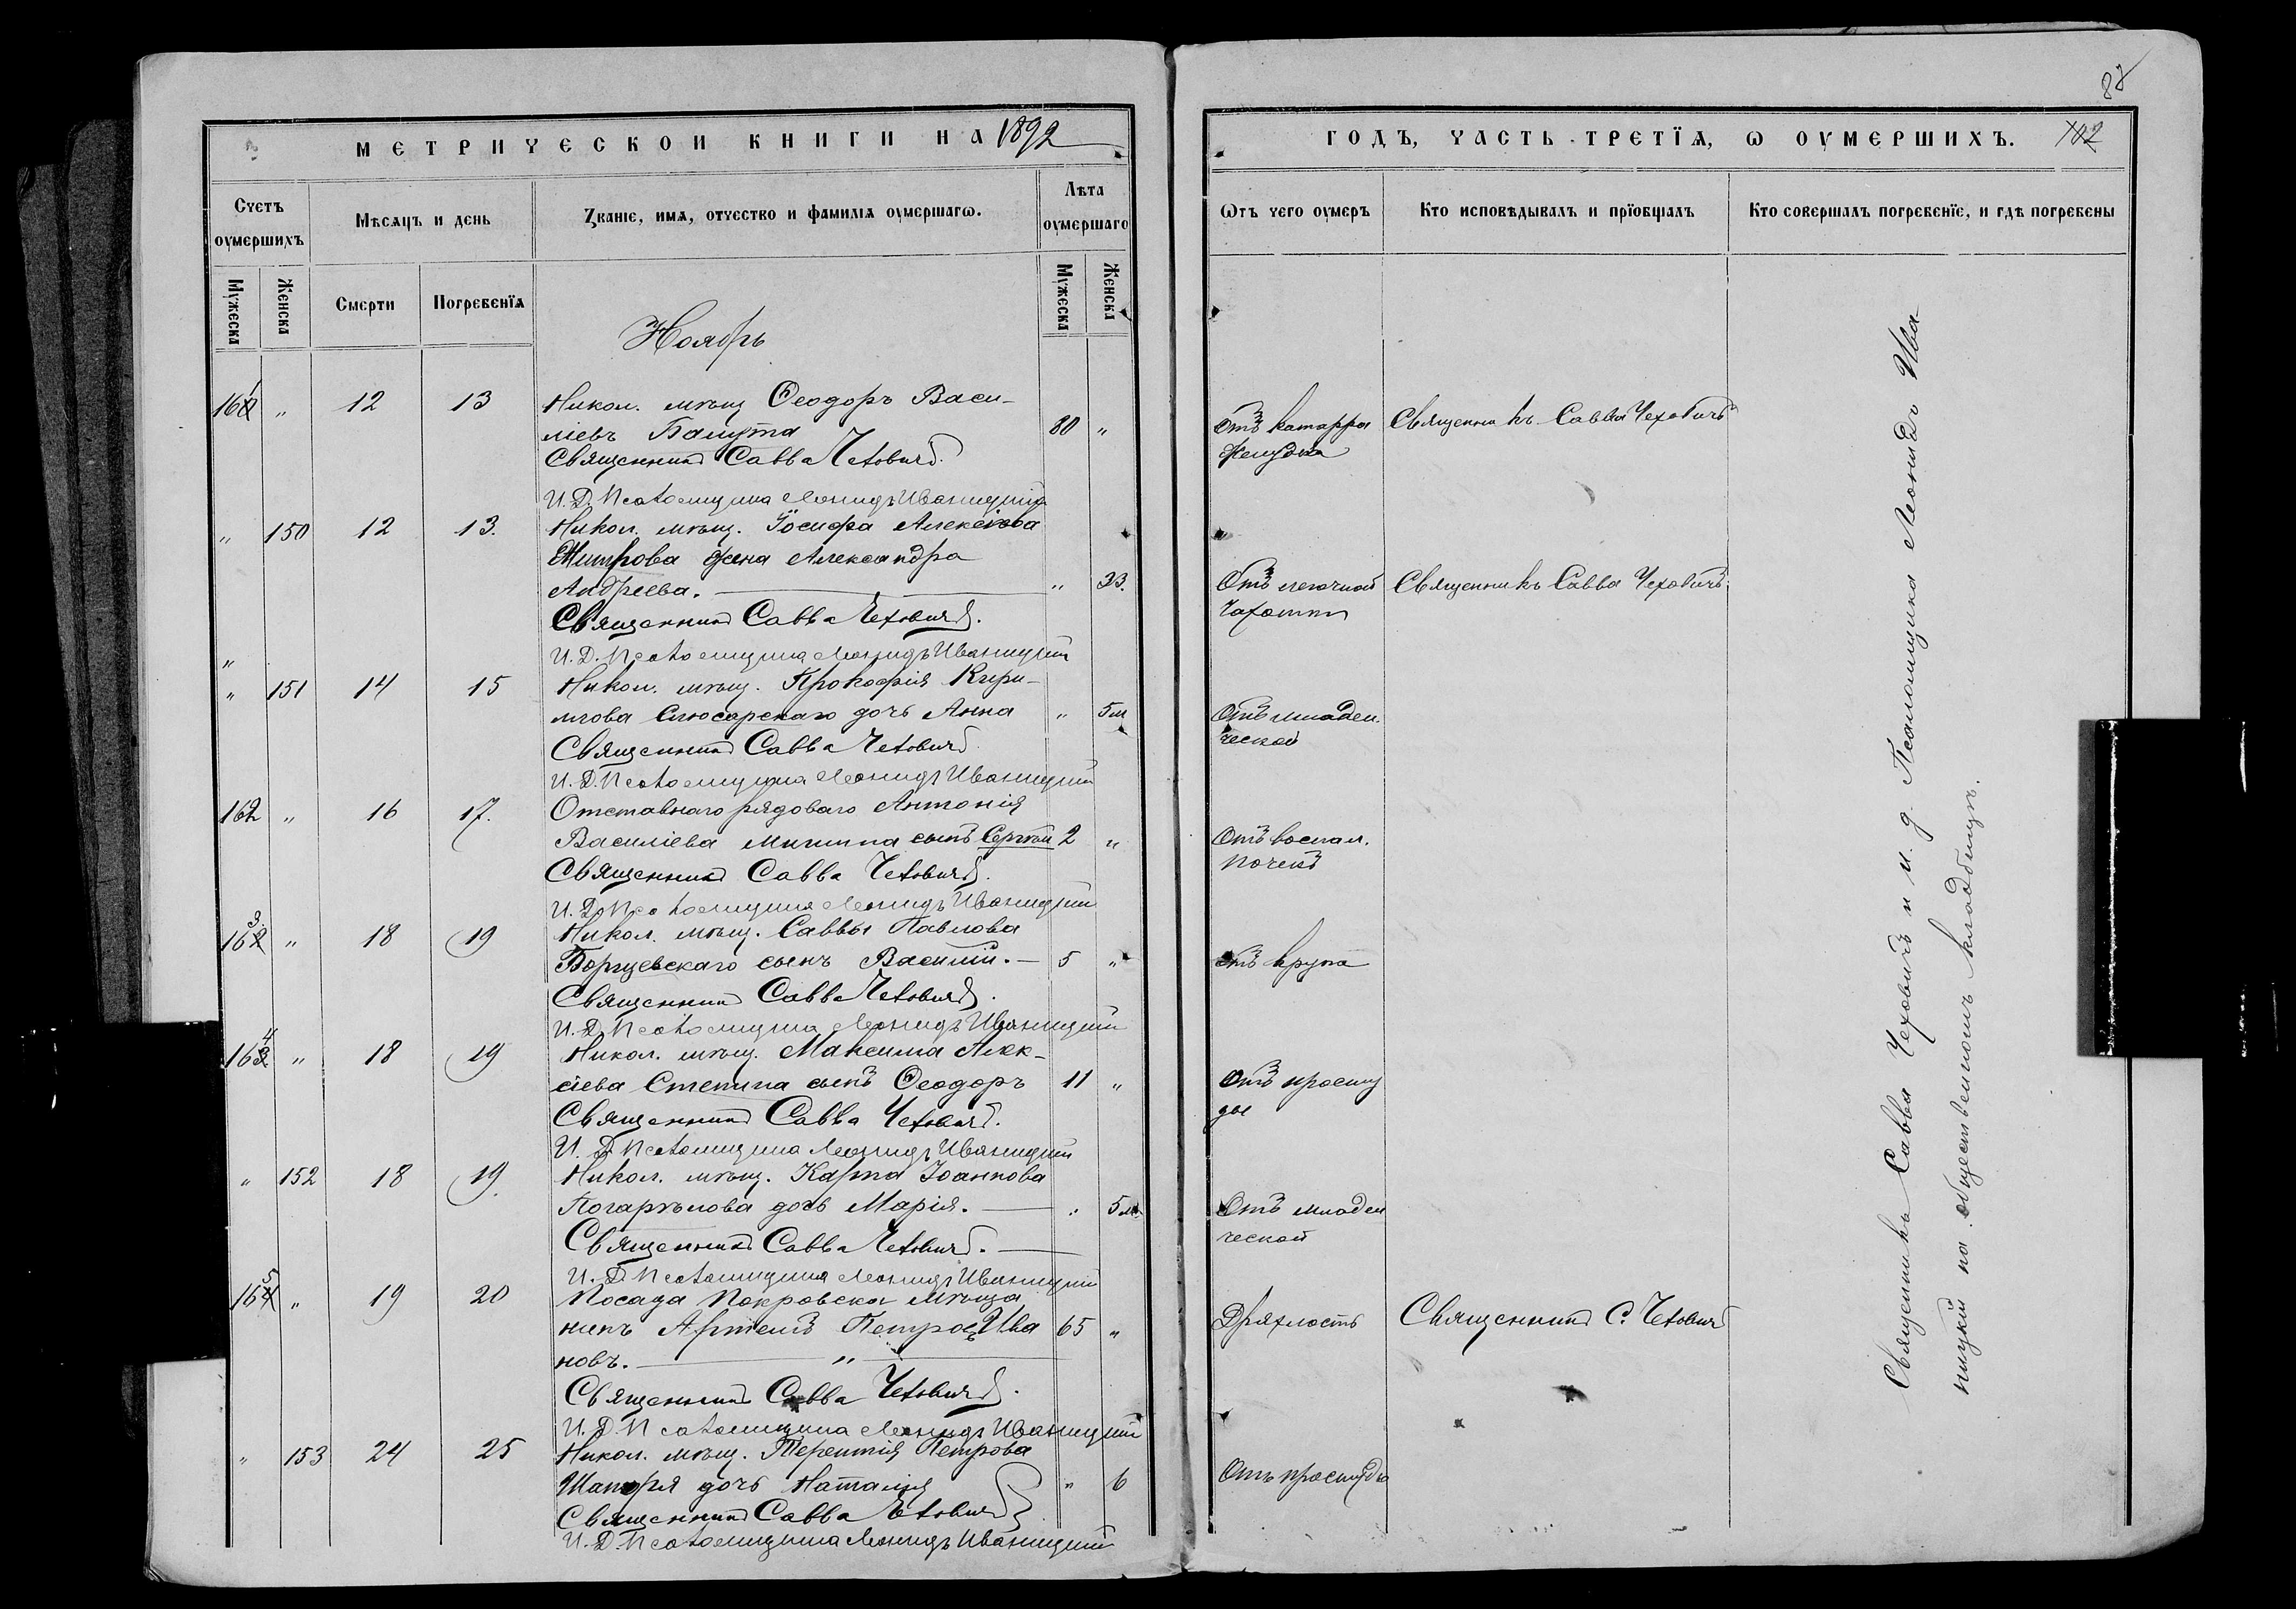 МЕТРИЧЕСКОЙ КНИГИ НА 1892
Счетъ оумершихъ
Мѣсяцъ и день
Званіе, имя, отчество и фамилія оумершагѡ.
Лѣта оумершаго
Мужеска
Женска
Смерти
Погребенїя
Мужеска
Женска
Ноябрь
161 „ 12 13 Никол. мѣщ Ѳеодоръ Васи-
ліевъ 80 „
Священникъ Савва Чеховичъ.
И. Д. Псаломщика Леонидъ Иваницкій
„ 150 12 13. Никол. мѣщ. Іосифа Алексіева
Жена Александра
Андреева. „ 33.
Священникъ Савва Чеховичъ.
И. Д. Псаломщика Леонидъ Иваницкій
„
„ 151 14 15 Никол. мѣщ. Прокофія Кири-
лова Слюсарскаго дочь Анна „ 5м
Священникъ Савва Чеховичъ
И. Д. Псаломщика Леонидъ Иваницкій
162 „ 16 17. Отставнаго рядоваго Антонія
Василіева Микина сынъ Сергѣй 2 „
Священникъ Савва Чеховичъ.
И. Д. Псаломщика Леонидъ Иваницкій
163 „ 18 19 Никол. мѣщ. Саввы Павлова
Боргцевскаго сынъ Василій. 5 „
Священникъ Савва Чеховичъ.
И. Д. Псаломщика Леонидъ Иваницкій
164 „ 18 19 Никол. мѣщ. Максима Алек-
сіева Степина сынъ Ѳеодоръ 11 „
Священникъ Савва Чеховичъ.
И. Д. Псаломщика Леонидъ Иваницкій
„ 152 18 19. Никол. мѣщ. Карпа Іоаннова
Погарѣлова дочь Марія. „ 5м
Священникъ Савва Чеховичъ.
И. Д. Псаломщика Леонидъ Иваницкій
165 „ 19 20 Посада Покровска мѣща
нинъ Артемъ Петровъ Ива 65 „
новъ. „
Священникъ Савва Чеховичъ.
И. Д. Псаломщика Леонидъ Иваницкій
„ 153 24 25 Никол. мѣщ. Терентія Петрова
дочь Наталія „ 6
Священникъ Савва Чеховичъ
И. Д. Псаломщика Леонидъ Иваницкій
88
ГОДЪ, ЧАСТЬ ТРЕТЇЯ, Ѡ ОУМЕРШИХЪ. 102
Ѿтъ чего оумеръ
Кто исповѣдывалъ и прїобщалъ
Кто совершалъ погребенїе, и гдѣ погребены
Отъ катарра Священникъ Савва Чеховичъ
желудка
Отъ легочной Священникъ Савва Чеховичъ.
чахотки
Отъ младен
ческой
Отъ воспал.
почекъ
Отъ крупа
Отъ просту
ды
Отъ младен
ческой
Дряхлость Священникъ С. Чеховичъ
Отъ простуды
Священникъ Савва Чеховичъ и и. д. Псаломщика Леонидъ Ива
ницкій на общественномъ кладбищѣ.